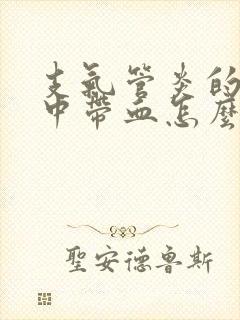 支氣管炎的
中帶血怎麼
聖安德魯斯